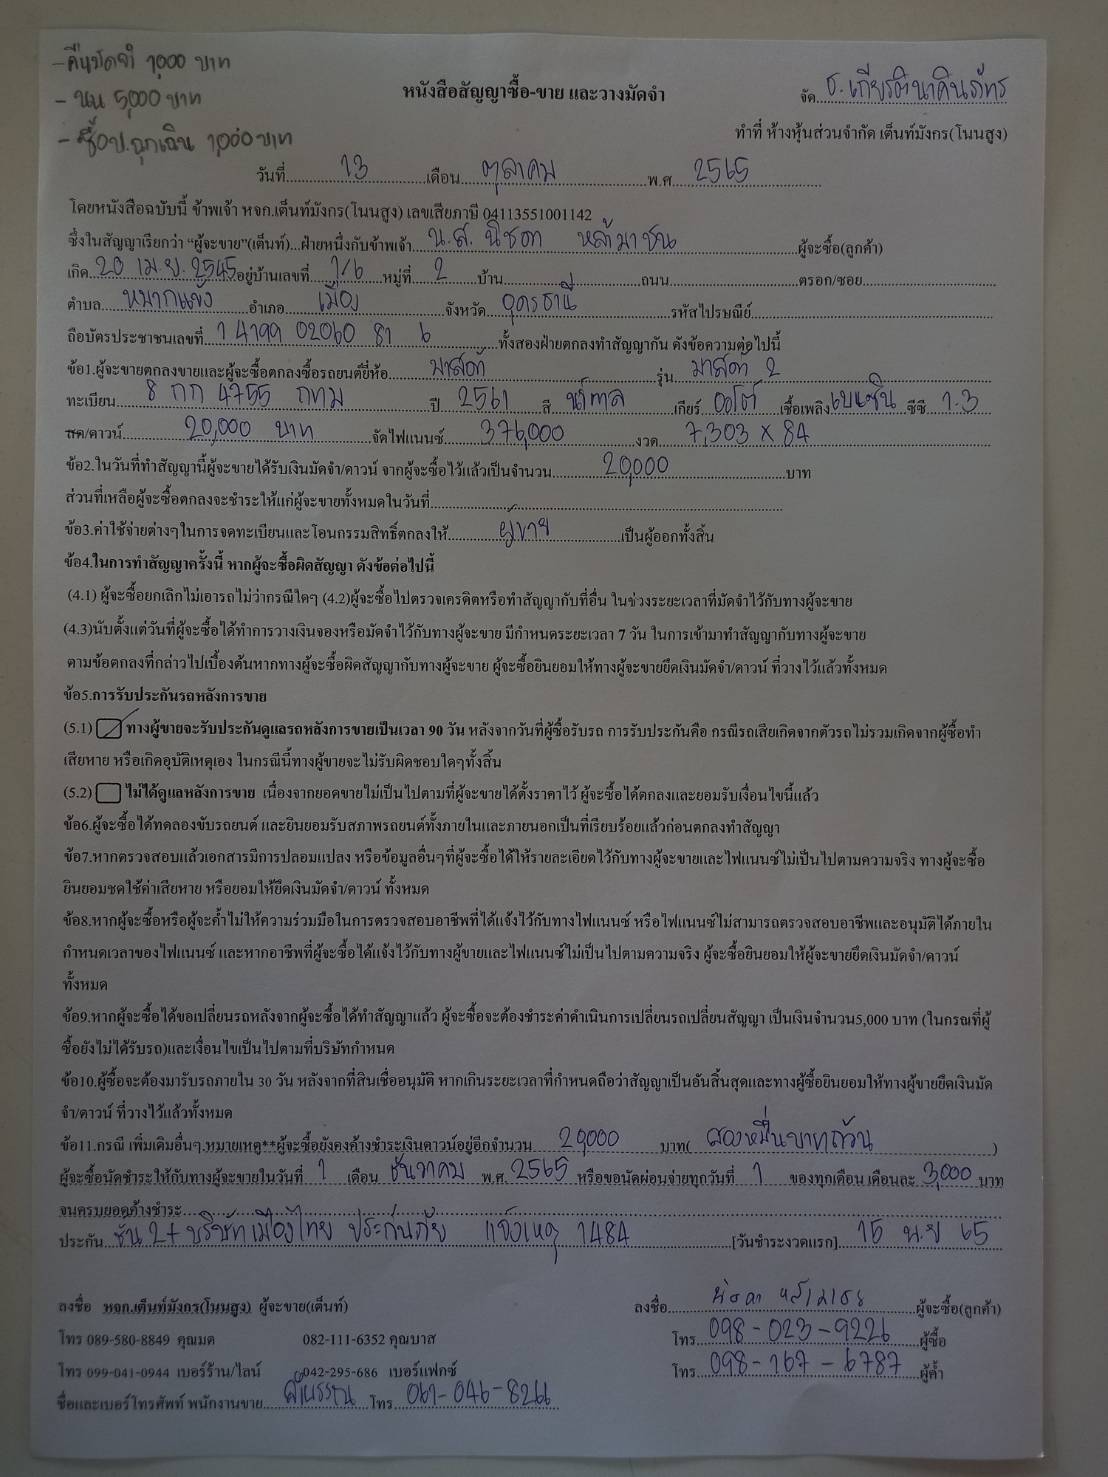 - คืนมัดจำ 1,000 บาท
- นน 5,000 บาท
- ซื้อป.ฉุกเฉิน 1,000 บาท
หนังสือสัญญาซื้อ-ขาย และวางมัดจำ
จัด ธ.เกียรตินาคินภัทร
ทำที่ ห้างหุ้นส่วนจำกัด เต็นท์มังกร(โนนสูง)
วันที่ 13 เดือน ตุลาคม พ.ศ. 2565
โดยหนังสือฉบับนี้ ข้าพเจ้า หจก.เต็นท์มังกร(โนนสูง) เลขเสียภาษี 04113551001142
ซึ่งในสัญญาเรียกว่า "ผู้จะขาย"(เต็นท์)...ฝ่ายหนึ่งกับข้าพเจ้า น.ส. นิชดา ผู้จะซื้อ(ลูกค้า)
เกิด 20 เม.ย. 2545 อยู่บ้านเลขที่ 1/6 หมู่ที่ 2 บ้าน ถนน ตรอก/ซอย
ตำบล หมากแข้ง อำเภอ เมือง จังหวัด อุดรธานี รหัสไปรษณีย์
ถือบัตรประชาชนเลขที่ 1 4199 02060 81 6 ทั้งสองฝ่ายตกลงทำสัญญากัน ดังข้อความต่อไปนี้
ข้อ1.ผู้จะขายตกลงขายและผู้จะซื้อตกลงซื้อรถยนต์ยี่ห้อ มาสด้า รุ่น มาสด้า 2
ทะเบียน 8 กก 4755 กทม ปี 2561 สี น้ำตาล เกียร์ ออโต้ เชื้อเพลิง เบนซิน ซีซี 1.3
สด/ดาวน์ 20,000 บาท จัดไฟแนนซ์ 376,000 งวด 7,303 x 84
ข้อ2.ในวันที่ทำสัญญานี้ผู้จะขายได้รับเงินมัดจำ/ดาวน์ จากผู้จะซื้อไว้แล้วเป็นจำนวน 20,000 บาท
ส่วนที่เหลือผู้จะซื้อตกลงจะชำระให้แก่ผู้จะขายทั้งหมดในวันที่
ข้อ3.ค่าใช้จ่ายต่างๆในการจดทะเบียนและโอนกรรมสิทธิ์ตกลงให้ ผู้ขาย เป็นผู้ออกทั้งสิ้น
ข้อ4.ในการทำสัญญาครั้งนี้ หากผู้จะซื้อผิดสัญญา ดังข้อต่อไปนี้
(4.1) ผู้จะซื้อยกเลิกไม่เอารถไม่ว่ากรณีใดๆ (4.2)ผู้จะซื้อไปตรวจเครดิตหรือทำสัญญากับที่อื่น ในช่วงระยะเวลาที่มัดจำไว้กับทางผู้จะขาย
(4.3)นับตั้งแต่วันที่ผู้จะซื้อได้ทำการวางเงินจองหรือมัดจำไว้กับทางผู้จะขาย มีกำหนดระยะเวลา 7 วัน ในการเข้ามาทำสัญญากับทางผู้จะขาย
ตามข้อตกลงที่กล่าวไปเบื้องต้นหากทางผู้จะซื้อผิดสัญญากับทางผู้จะขาย ผู้จะซื้อยินยอมให้ทางผู้จะขายยึดเงินมัดจำ/ดาวน์ ที่วางไว้แล้วทั้งหมด
ข้อ5.การรับประกันรถหลังการขาย
(5.1) ทางผู้ขายจะรับประกันดูแลรถหลังการขายเป็นเวลา 90 วัน หลังจากวันที่ผู้ซื้อรับรถ การรับประกันคือ กรณีรถเสียเกิดจากตัวรถไม่รวมเกิดจากผู้ซื้อทำ
เสียหาย หรือเกิดอุบัติเหตุเอง ในกรณีนี้ทางผู้ขายจะไม่รับผิดชอบใดๆทั้งสิ้น
(5.2) ไม่ได้ดูแลหลังการขาย เนื่องจากยอดขายไม่เป็นไปตามที่ผู้จะขายได้ตั้งราคาไว้ ผู้จะซื้อได้ตกลงและยอมรับเงื่อนไขนี้แล้ว
ข้อ6.ผู้จะซื้อได้ทดลองขับรถยนต์ และยินยอมรับสภาพรถยนต์ทั้งภายในและภายนอกเป็นที่เรียบร้อยแล้วก่อนตกลงทำสัญญา
ข้อ7.หากตรวจสอบแล้วเอกสารมีการปลอมแปลง หรือข้อมูลอื่นๆที่ผู้จะซื้อได้ให้รายละเอียดไว้กับทางผู้จะขายและไฟแนนซ์ไม่เป็นไปตามความจริง ทางผู้จะซื้อ
ยินยอมชดใช้ค่าเสียหาย หรือยอมให้ยึดเงินมัดจำ/ดาวน์ ทั้งหมด
ข้อ8.หากผู้จะซื้อหรือผู้จะค้ำไม่ให้ความร่วมมือในการตรวจสอบอาชีพที่ได้แจ้งไว้กับทางไฟแนนซ์ หรือไฟแนนซ์ไม่สามารถตรวจสอบอาชีพและอนุมัติได้ภายใน
กำหนดเวลาของไฟแนนซ์ และหากอาชีพที่ผู้จะซื้อได้แจ้งไว้กับทางผู้ขายและไฟแนนซ์ไม่เป็นไปตามความจริง ผู้จะซื้อยินยอมให้ผู้จะขายยึดเงินมัดจำ/ดาวน์
ทั้งหมด
ข้อ9.หากผู้จะซื้อได้ขอเปลี่ยนรถหลังจากผู้จะซื้อได้ทำสัญญาแล้ว ผู้จะซื้อจะต้องชำระค่าดำเนินการเปลี่ยนรถเปลี่ยนสัญญา เป็นเงินจำนวน5,000 บาท (ในกรณที่ผู้
ซื้อยังไม่ได้รับรถ)และเงื่อนไขเป็นไปตามที่บริษัทกำหนด
ข้อ10.ผู้ซื้อจะต้องมารับรถภายใน 30 วัน หลังจากที่สินเชื่ออนุมัติ หากเกินระยะเวลาที่กำหนดถือว่าสัญญาเป็นอันสิ้นสุดและทางผู้ซื้อยินยอมให้ทางผู้ขายยึดเงินมัด
จำ/ดาวน์ ที่วางไว้แล้วทั้งหมด
ข้อ11.กรณี เพิ่มเติมอื่นๆ.หมายเหตุ**ผู้จะซื้อยังคงค้างชำระเงินดาวน์อยู่อีกจำนวน 20,000 บาท( สองหมื่นบาทถ้วน )
ผู้จะซื้อนัดชำระให้กับทางผู้จะขายในวันที่ 1 เดือน ธันวาคม พ.ศ. 2565 หรือขอนัดผ่อนจ่ายทุกวันที่ 1 ของทุกเดือน เดือนละ 3,000 บาท
จนครบยอดค้างชำระ
ประกัน ชั้น 2+ บริษัทเมืองไทย ประกันภัย แจ้งเหตุ 1484 [วันชำระงวดแรก] 15 พ.ย 65
ลงชื่อ หจก.เต็นท์มังกร(โนนสูง) ผู้จะขาย(เต็นท์) ลงชื่อ ผู้จะซื้อ(ลูกค้า)
โทร 089-580-8849 คุณมด 082-111-6352 คุณบาส โทร 098-023-9226 ผู้ซื้อ
โทร 099-041-0944 เบอร์ร้าน/ไลน์ 042-295-686 เบอร์แฟกซ์ โทร 098-167-6787 ผู้ค้ำ
ชื่อและเบอร์โทรศัพท์ พนักงานขาย โทร 061-046-8266